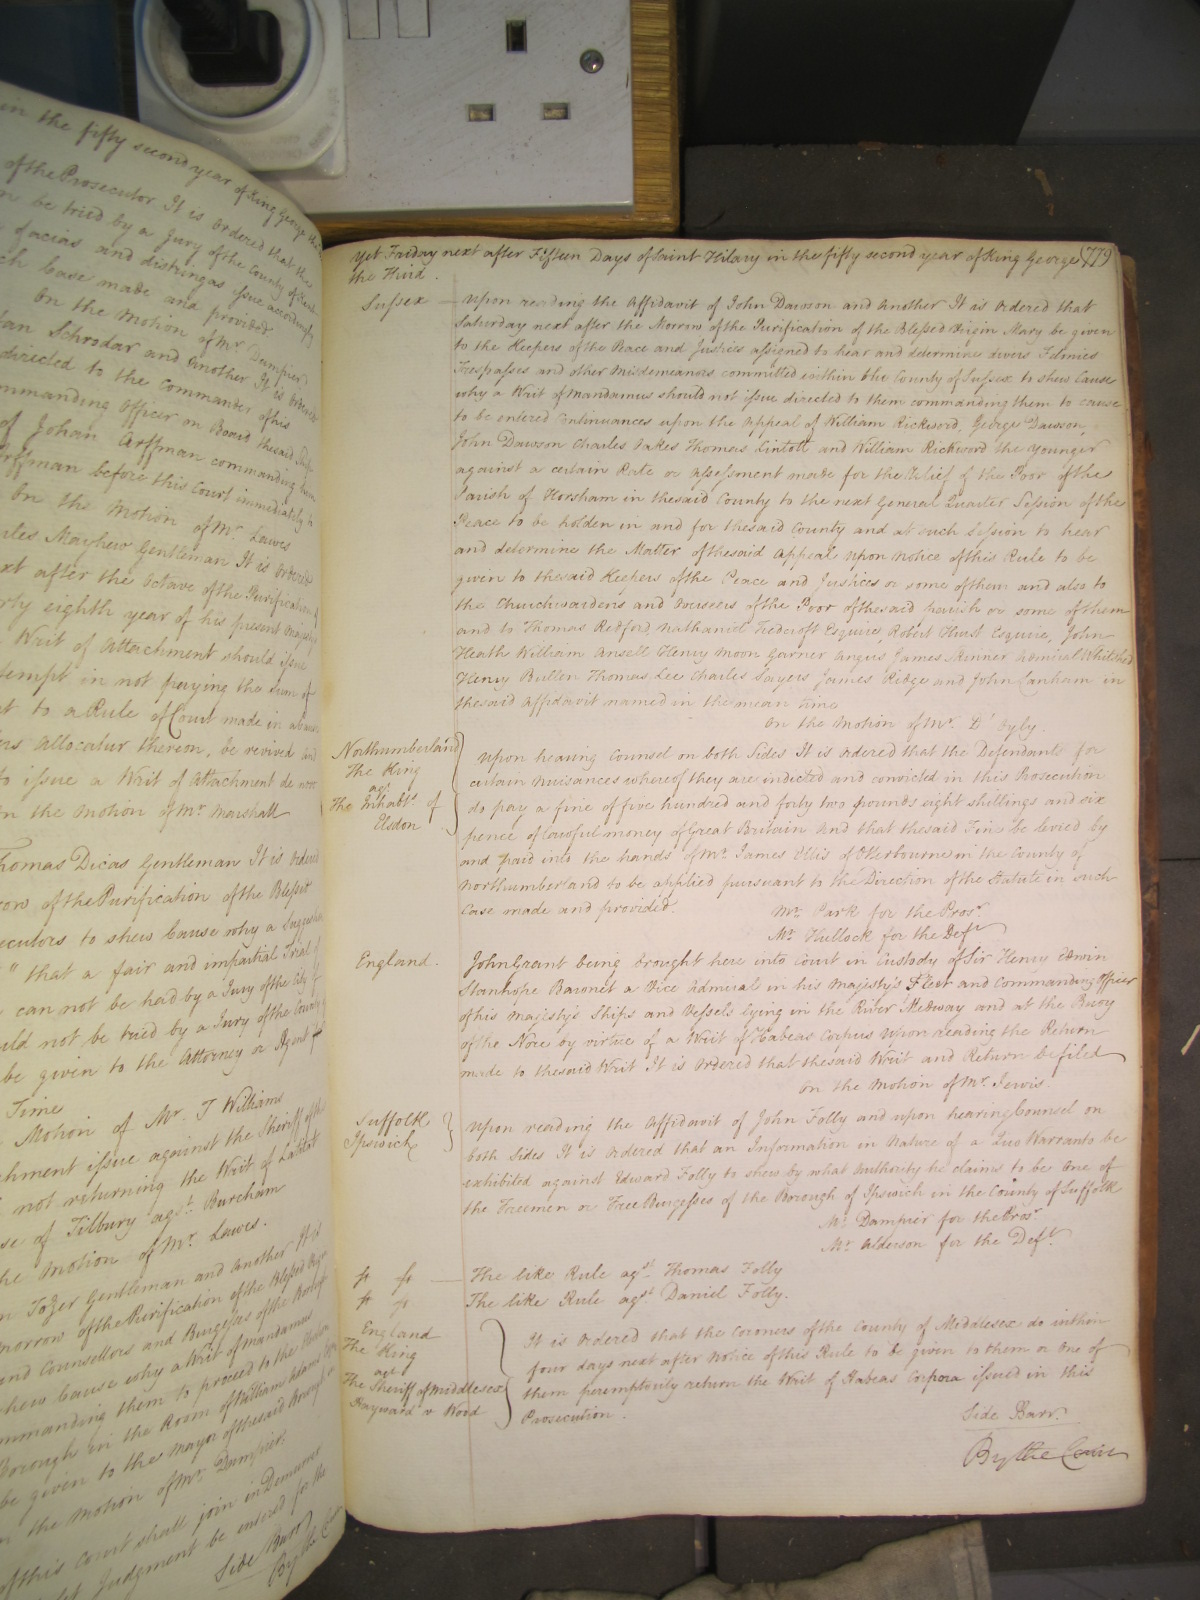 in the fifty second year of King George the
of the Prosecutor It is ordered that the
be tried by a Jury of the County of Kent
facias and distringas issue accordingly
ch Case made and provided
On the Motion of Mr Dampier
an Schrodar and another It is ordered
directed to the Commander of his
mmanding Officer on Board the said Ship
of Johan Arffman commanding him
rffman before this Court immediately
On the Motion of Mr Lawes
rles Mayhew Gentleman It is ordered
xt after the Octave of the Purification
rty eighth year of his present Majesty
Writ of Attachment should issue
tempt in not paying the sum of
t to a Rule of Court made in a
ers allocatur thereon, be revived and
to issue a Writ of Attachment de novo
n the Motion of Mr Marshall
Thomas Dicas Gentleman It is ordered
row of the Purification of the Blessed
ecutors to shew Cause why a Suggestion
" that a fair and impartial Trial
can not be had by a Jury of the City of
uld not be tried by a Jury of the County
be given to the Attorney or Agent
Time
Motion of Mr. T Williams
chment issue against the Sheriff of
not returning the Writ of Latitat
se of Tilbury agst. Burcham
he Motion of Mr. Lawes.
n Tozer Gentleman and another It is
morrow of the Purification of the Blessed
and Counsellors and Burgesses of the
shew Cause why a Writ of Mandamus
mmanding them to proceed to the
Borough in the Room of William
be given to the Mayor of the said Borough
n the Motion of Mr. Dampier
of this Court shall join in Demurrer
Judgment be entered for the
Side Barr
By the Court
779
Yet Friday next after Fifteen Days of Saint Hilary in the fifty second year of King George
the Third.
Sussex — Upon reading the Affidavit of John Dawson and another It is ordered that
Saturday next after the Morrow of the Purification of the Blessed Virgin Mary be given
to the Keepers of the Peace and Justices assigned to hear and determine divers Felonies
Trespasses and other Misdemeanors committed within the County of Sussex to shew Cause
why a Writ of Mandamus should not issue directed to them commanding them to cause
to be entered Continuances upon the Appeal of William Rickword, George Dawson,
John Dawson Charles Oakes Thomas Lintott and William Rickword the younger
against a certain Rate or Assessment made for the Relief of the Poor of the
Parish of Horsham in the said County to the next General Quarter Session of the
Peace to be holden in and for the said County and at such Session to hear
and determine the Matter of the said Appeal upon Notice of this Rule to be
given to the said Keepers of the Peace and Justices or some of them and also to
the Churchwardens and Overseers of the Poor of the said Parish or some of them
and to Thomas Redford, Nathaniel Tredcroft Esquires, Robert Hurst Esquire, John
Heath William Ansell Henry Moon Garner Angus James Skinner Admiral Whitshed
Henry Bullen Thomas Lee Charles Sayers James Ridge and John Canham in
the said Affidavit named in the mean time
On the Motion of Mr. D'Oyly.
Northumberland
The King
agt.
The Inhabts. of
Elsdon
Upon hearing Counsel on both Sides It is ordered that the Defendants for
certain nuisances whereof they are indicted and convicted in this Prosecution
do pay a fine of five hundred and forty two pounds eight shillings and six
pence of lawful money of Great Britain and that the said Fine be levied by
and paid into the hands of Mr. James Ellis of Otterbourne in the County of
Northumberland to be applied pursuant to the Direction of the Statute in such
Case made and provided.
Mr. Park for the Prosr.
Mr. Hullock for the Deft.
England. John Grant being brought here into Court in Custody of Sir Henry Edwin
Stanhope Baronet a Vice Admiral in his Majesty's Fleet and Commanding Officer
of his Majesty's Ships and Vessels lying in the River Medway and at the Buoy
of the Nore by virtue of a Writ of Habeas Corpus Upon reading the Return
made to the said Writ It is ordered that the said Writ and Return be filed
On the Motion of Mr. Jervis.
Suffolk
Ipswich
Upon reading the Affidavit of John Folly and upon hearing Counsel on
both Sides It is ordered that an Information in Nature of a Quo Warranto be
exhibited against Edward Folly to shew by what Authority he claims to be One of
the Freemen or Free Burgesses of the Borough of Ipswich in the County of Suffolk
Mr. Dampier for the Prosr.
Mr. Alderson for the Deft.
The like Rule agst. Thomas Folly
The like Rule agst. Daniel Folly.
England
The King
agt
The Sheriff of Middlesex
Hayward v Wood
It is ordered that the Coroners of the County of Middlesex do within
four days next after Notice of this Rule to be given to them or One of
them peremptorily return the Writ of Habeas Corpora issued in this
Prosecution.
Side Barr.
By the Court